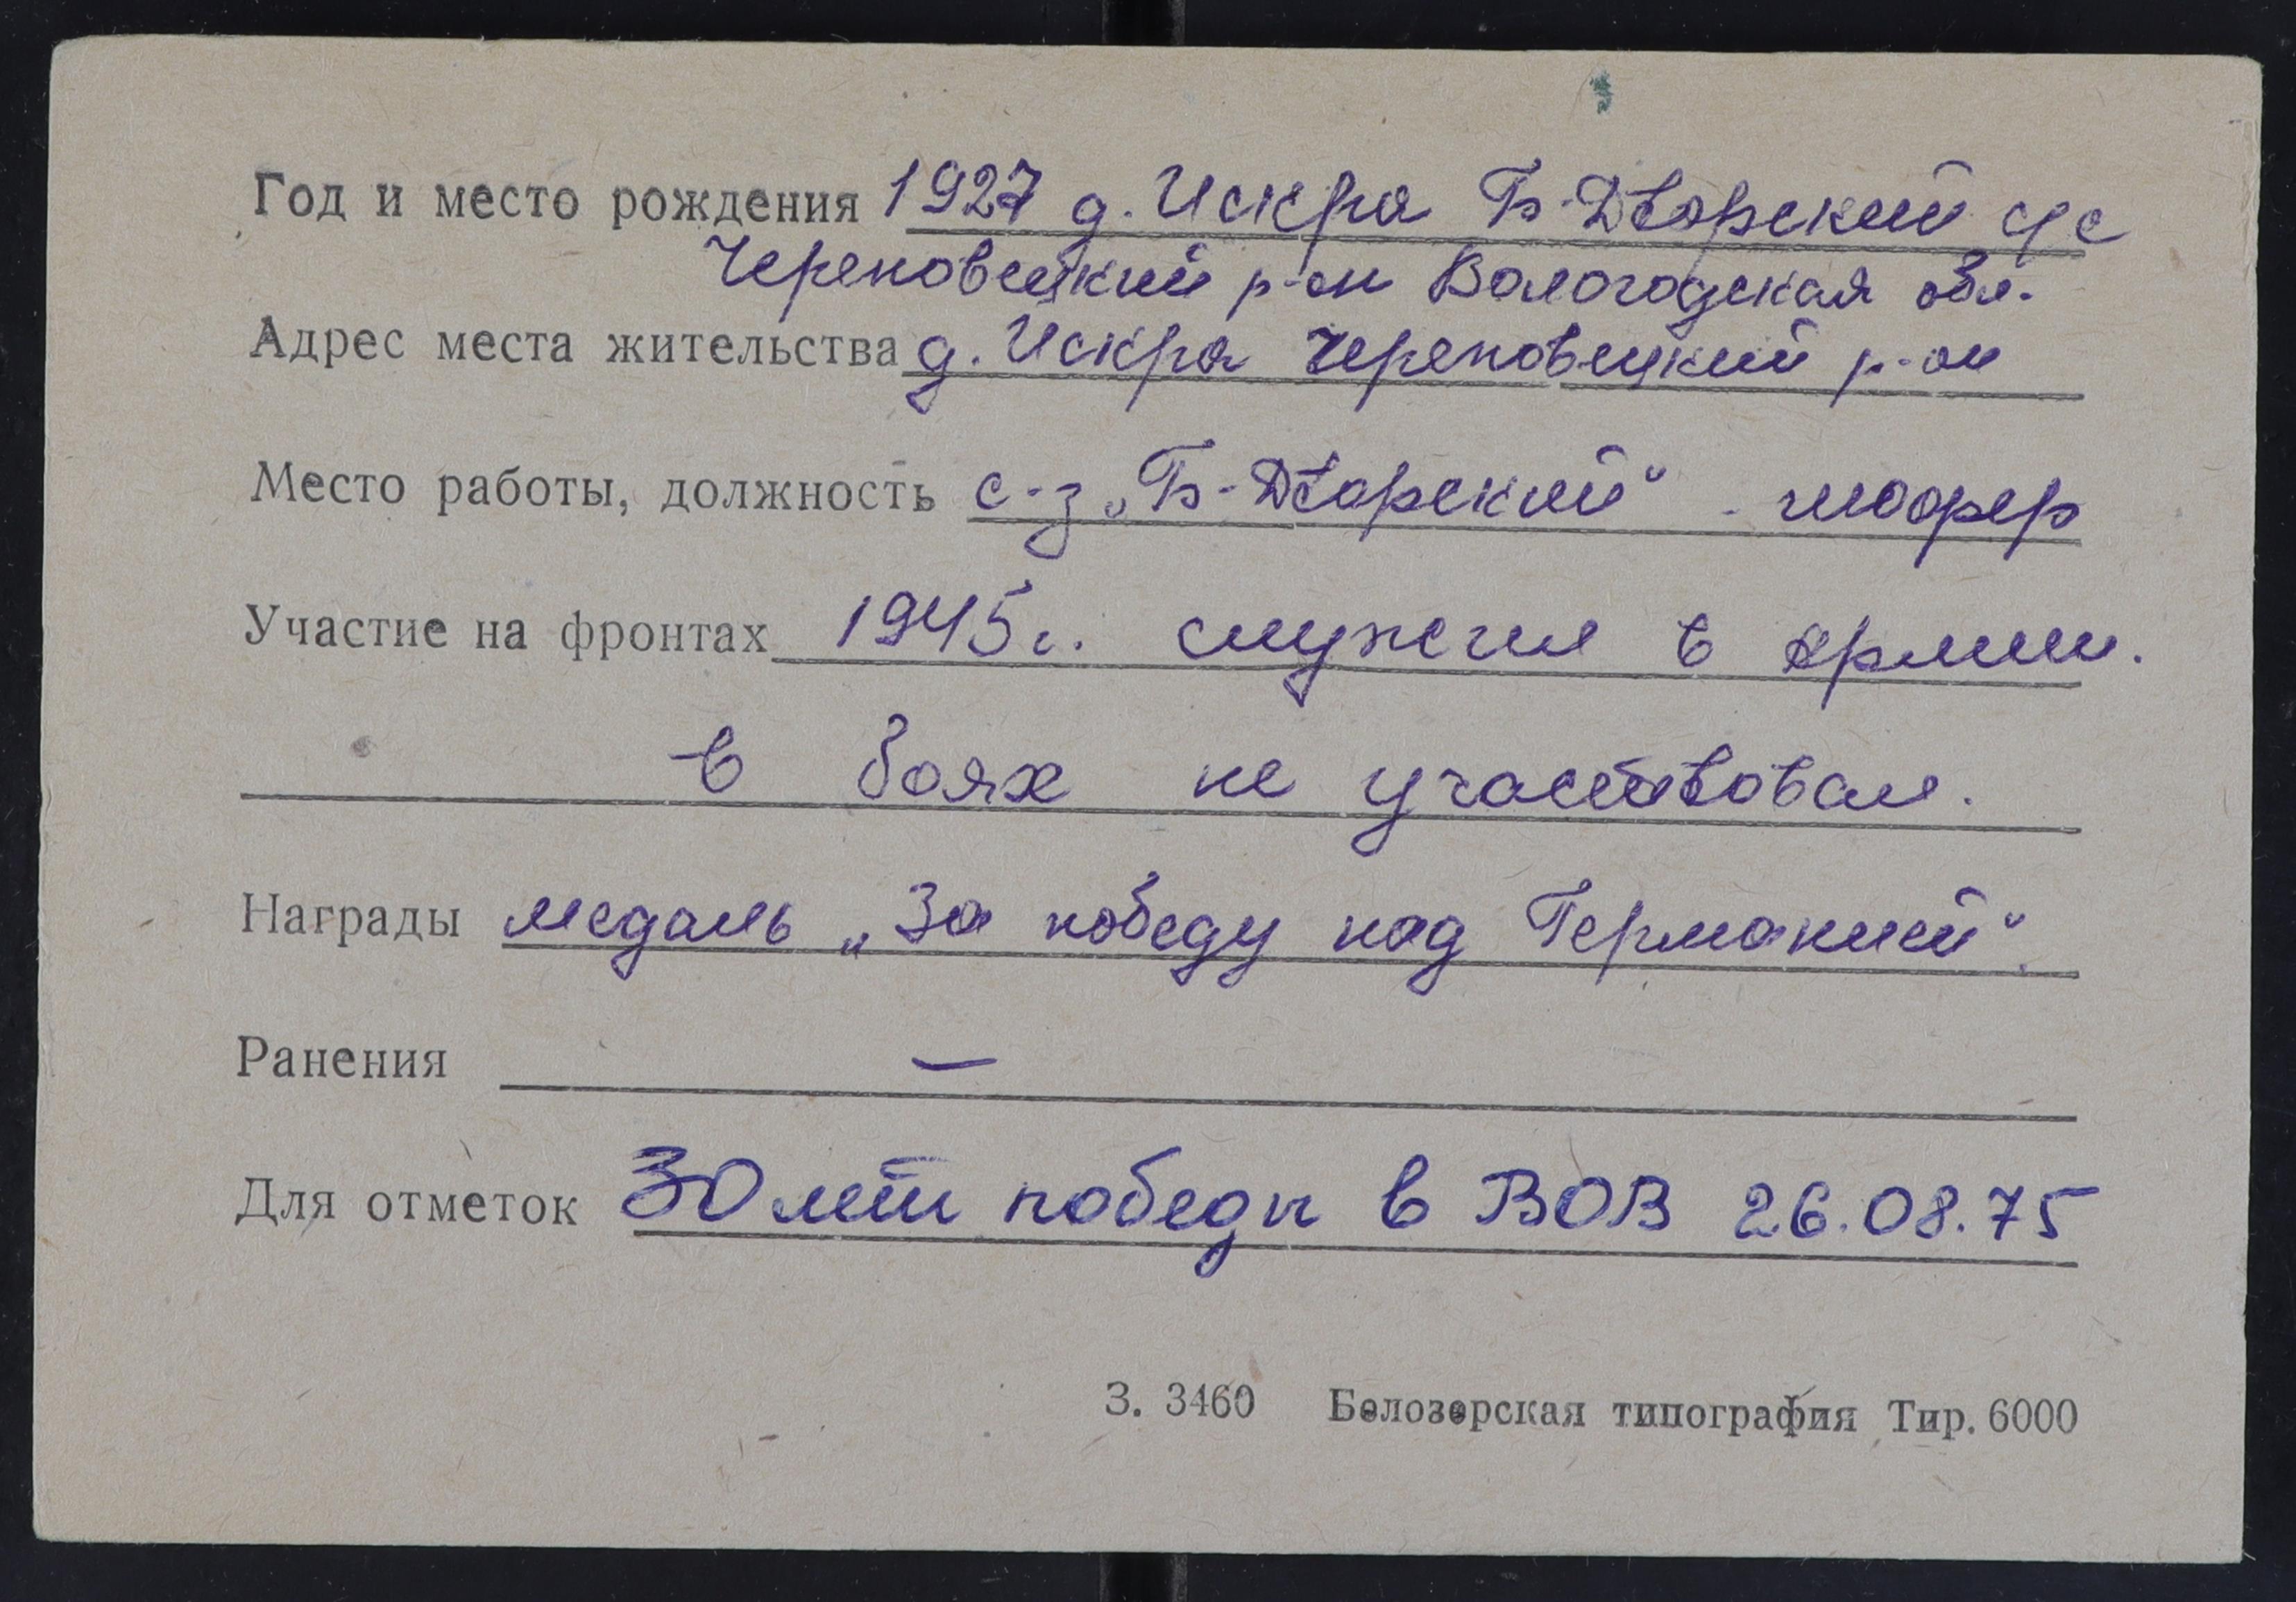 Год и место рождения 1927 д. Искра Б-Дворский с/с
Череповецкий р-он Вологодская обл.
Адрес места жительства д. Искра Череповецкий р-он
Место работы, должность с-з „Б-Дворский“ - шофер
Участие на фронтах 1945 г. служил в армии.
в боях не участвовал.
Награды медаль „За победу над Германией“.
Ранения —
Для отметок 30 лет победы в ВОВ 26.08.75
З. 3460 Белозерская типография Тир. 6000